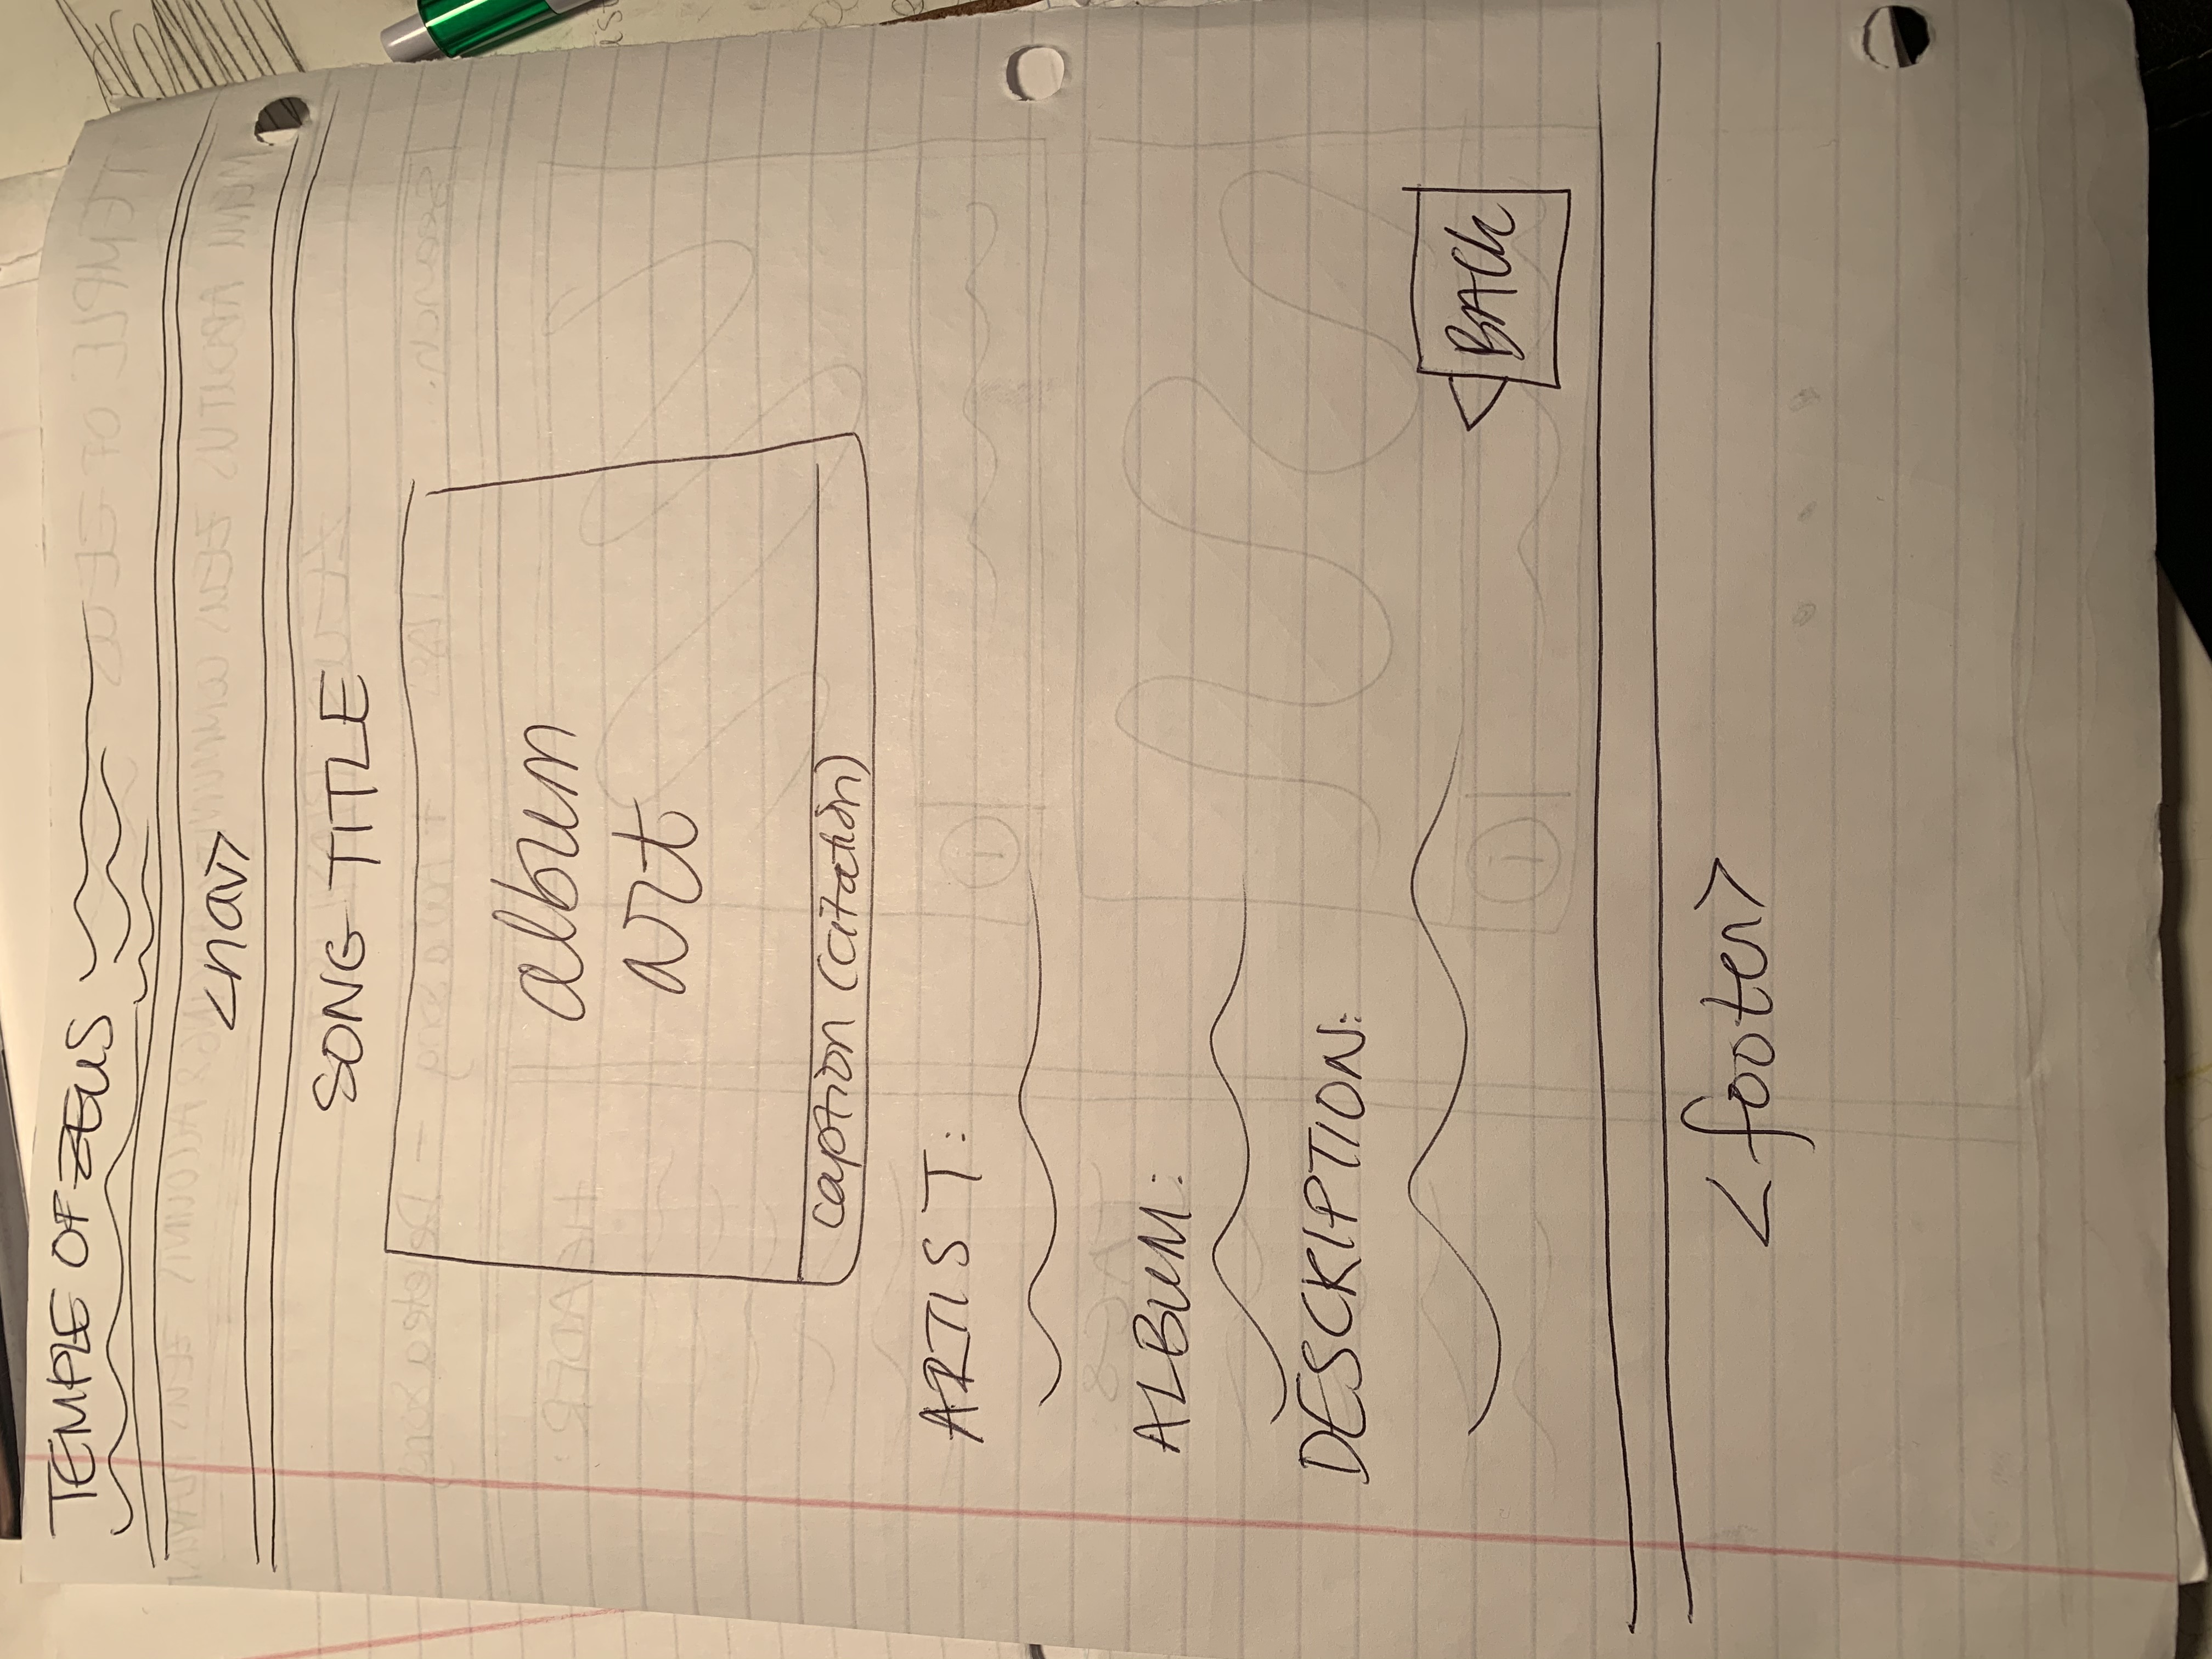 TEMPLE OF ZEUS
<nav>
SONG TITLE
album
art
caption (citation)
ARTIST:
ALBUM:
DESCRIPTION:
BACK
<footer>